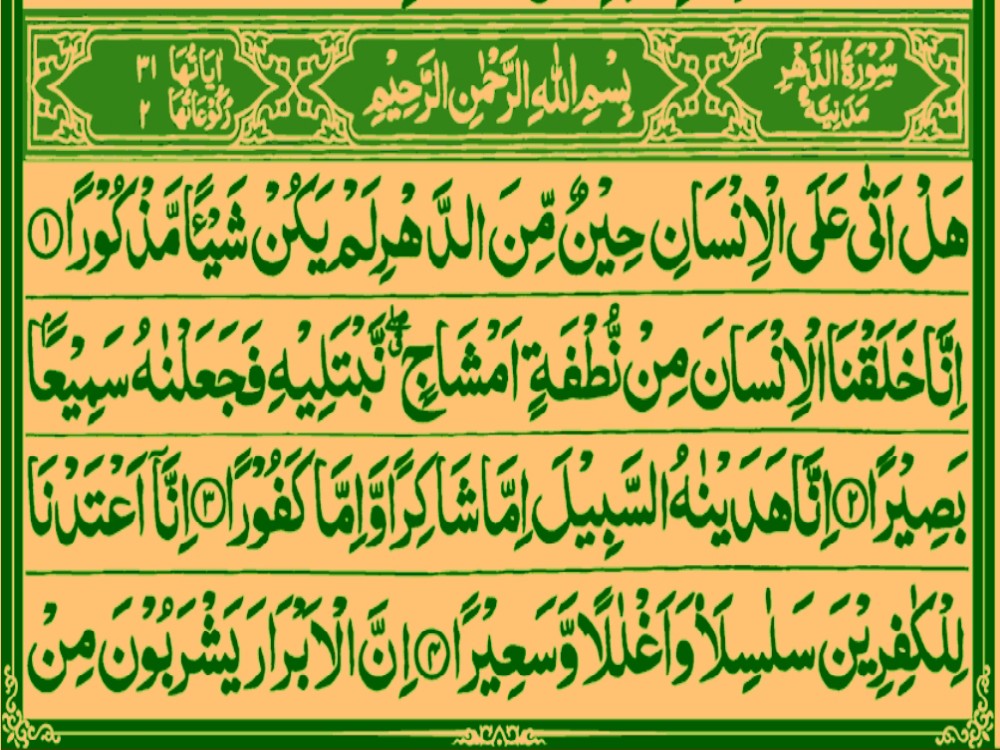 سُوْرَةُ الدَّهْرِ
مَدَنِيَّةٌ
بِسْمِ اللّٰهِ الرَّحْمٰنِ الرَّحِيْمِ
اٰيَاتُهَا ٣١
رُكُوْعَاتُهَا ٢
هَلْ اَتٰى عَلَى الْاِنْسَانِ حِيْنٌ مِّنَ الدَّهْرِ لَمْ يَكُنْ شَيْـًٔا مَّذْكُوْرًا ١
اِنَّا خَلَقْنَا الْاِنْسَانَ مِنْ نُّطْفَةٍ اَمْشَاجٍ ۖق نَّبْتَلِيْهِ فَجَعَلْنٰهُ سَمِيْعًاۢ
بَصِيْرًا ٢ اِنَّا هَدَيْنٰهُ السَّبِيْلَ اِمَّا شَاكِرًا وَّاِمَّا كَفُوْرًا ٣ اِنَّاۤ اَعْتَدْنَا
لِلْكٰفِرِيْنَ سَلٰسِلَا۟ وَاَغْلٰلًا وَّسَعِيْرًا ٤ اِنَّ الْاَبْرَارَ يَشْرَبُوْنَ مِنْ